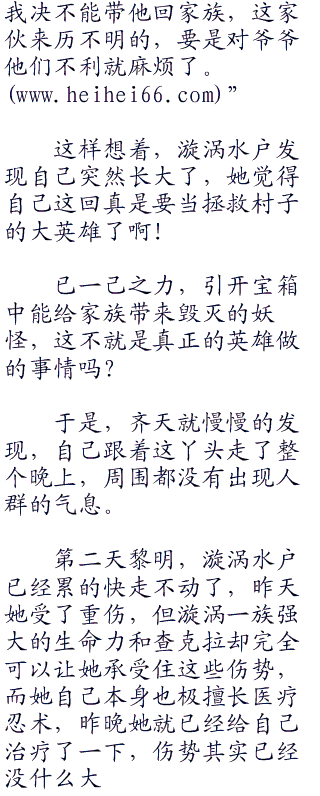 我决不能带他回家族，这家
伙来历不明的，要是对爷爷
他们不利就麻烦了。
(www.heihei66.com)”
这样想着，漩涡水户发
现自己突然长大了，她觉得
自己这回真是要当拯救村子
的大英雄了啊!
已一己之力，引开宝箱
中能给家族带来毁灭的妖
怪，这不就是真正的英雄做
的事情吗?
于是，齐天就慢慢的发
现，自己跟着这丫头走了整
个晚上，周围都没有出现人
群的气息。
第二天黎明，漩涡水户
已经累的快走不动了，昨天
她受了重伤，但漩涡一族强
大的生命力和查克拉却完全
可以让她承受住这些伤势，
而她自己本身也极擅长医疗
忍术，昨晚她就已经给自己
治疗了一下，伤势其实已经
没什么大